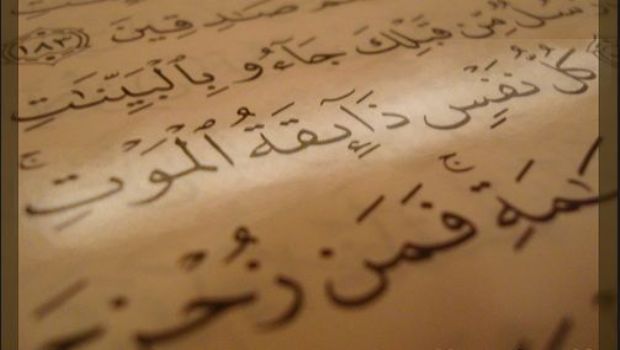 صَٰدِقِينَ ١٨٣
رُسُلٌ مِّن قَبْلِكَ جَآءُو بِٱلْبَيِّنَٰتِ
كُلُّ نَفْسٍ ذَآئِقَةُ ٱلْمَوْتِ ۗ
فَمَن زُحْزِحَ